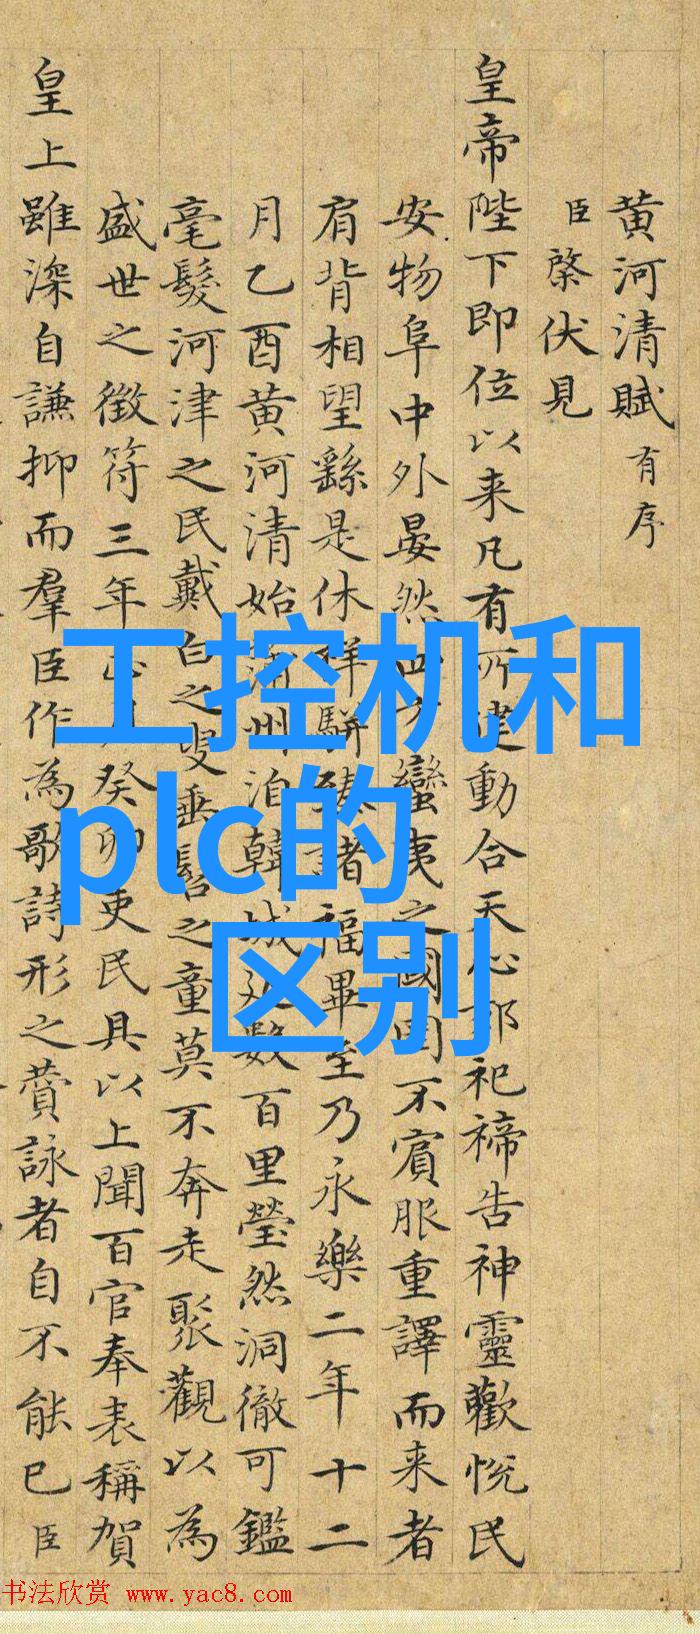 黄河清賦有序
臣棨伏見
皇帝陛下即位以来凡有所建動合天心郊祀禘告神靈歡悦民
安物阜中外晏然四方蠻夷之國罔不賓服重譯而来者
肩背相望繇是休祥駢臻諸福畢至乃永樂二年十二
月乙酉黄河清始蒲州洎韓城延数百里瑩然洞徹可鑑
毫髮河津之民戴白之叟垂髫之童莫不奔走聚觀以為
盛世之徵符三年正月癸卯吏民具以上聞百官奉表稱賀
皇上雖深自謙抑而羣臣作為歌詩形之賛詠者自不能已臣
工控机和
plc的
区别
书法欣赏 www.yac8.com